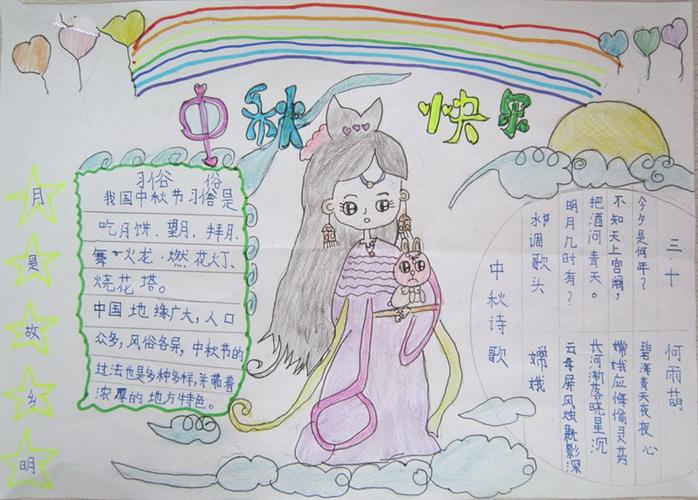 中秋快乐
月是故乡明
习俗 俗
我国中秋节习俗是
吃月饼、望月、拜月、
火龙、燃花灯、
烧花塔。
中国地缘广大,人口
众多,风俗各异,中秋节的
过法也是多种多样,并带着
浓厚的地方特色。
中秋诗歌
水调歌头
明月几时有?
把酒问青天。
不知天上宫阙,
今夕是何年?
嫦娥
云母屏风烛影深
长河渐落晓星沉
嫦娥应悔偷灵药
碧海青天夜夜心
三十
何雨萌